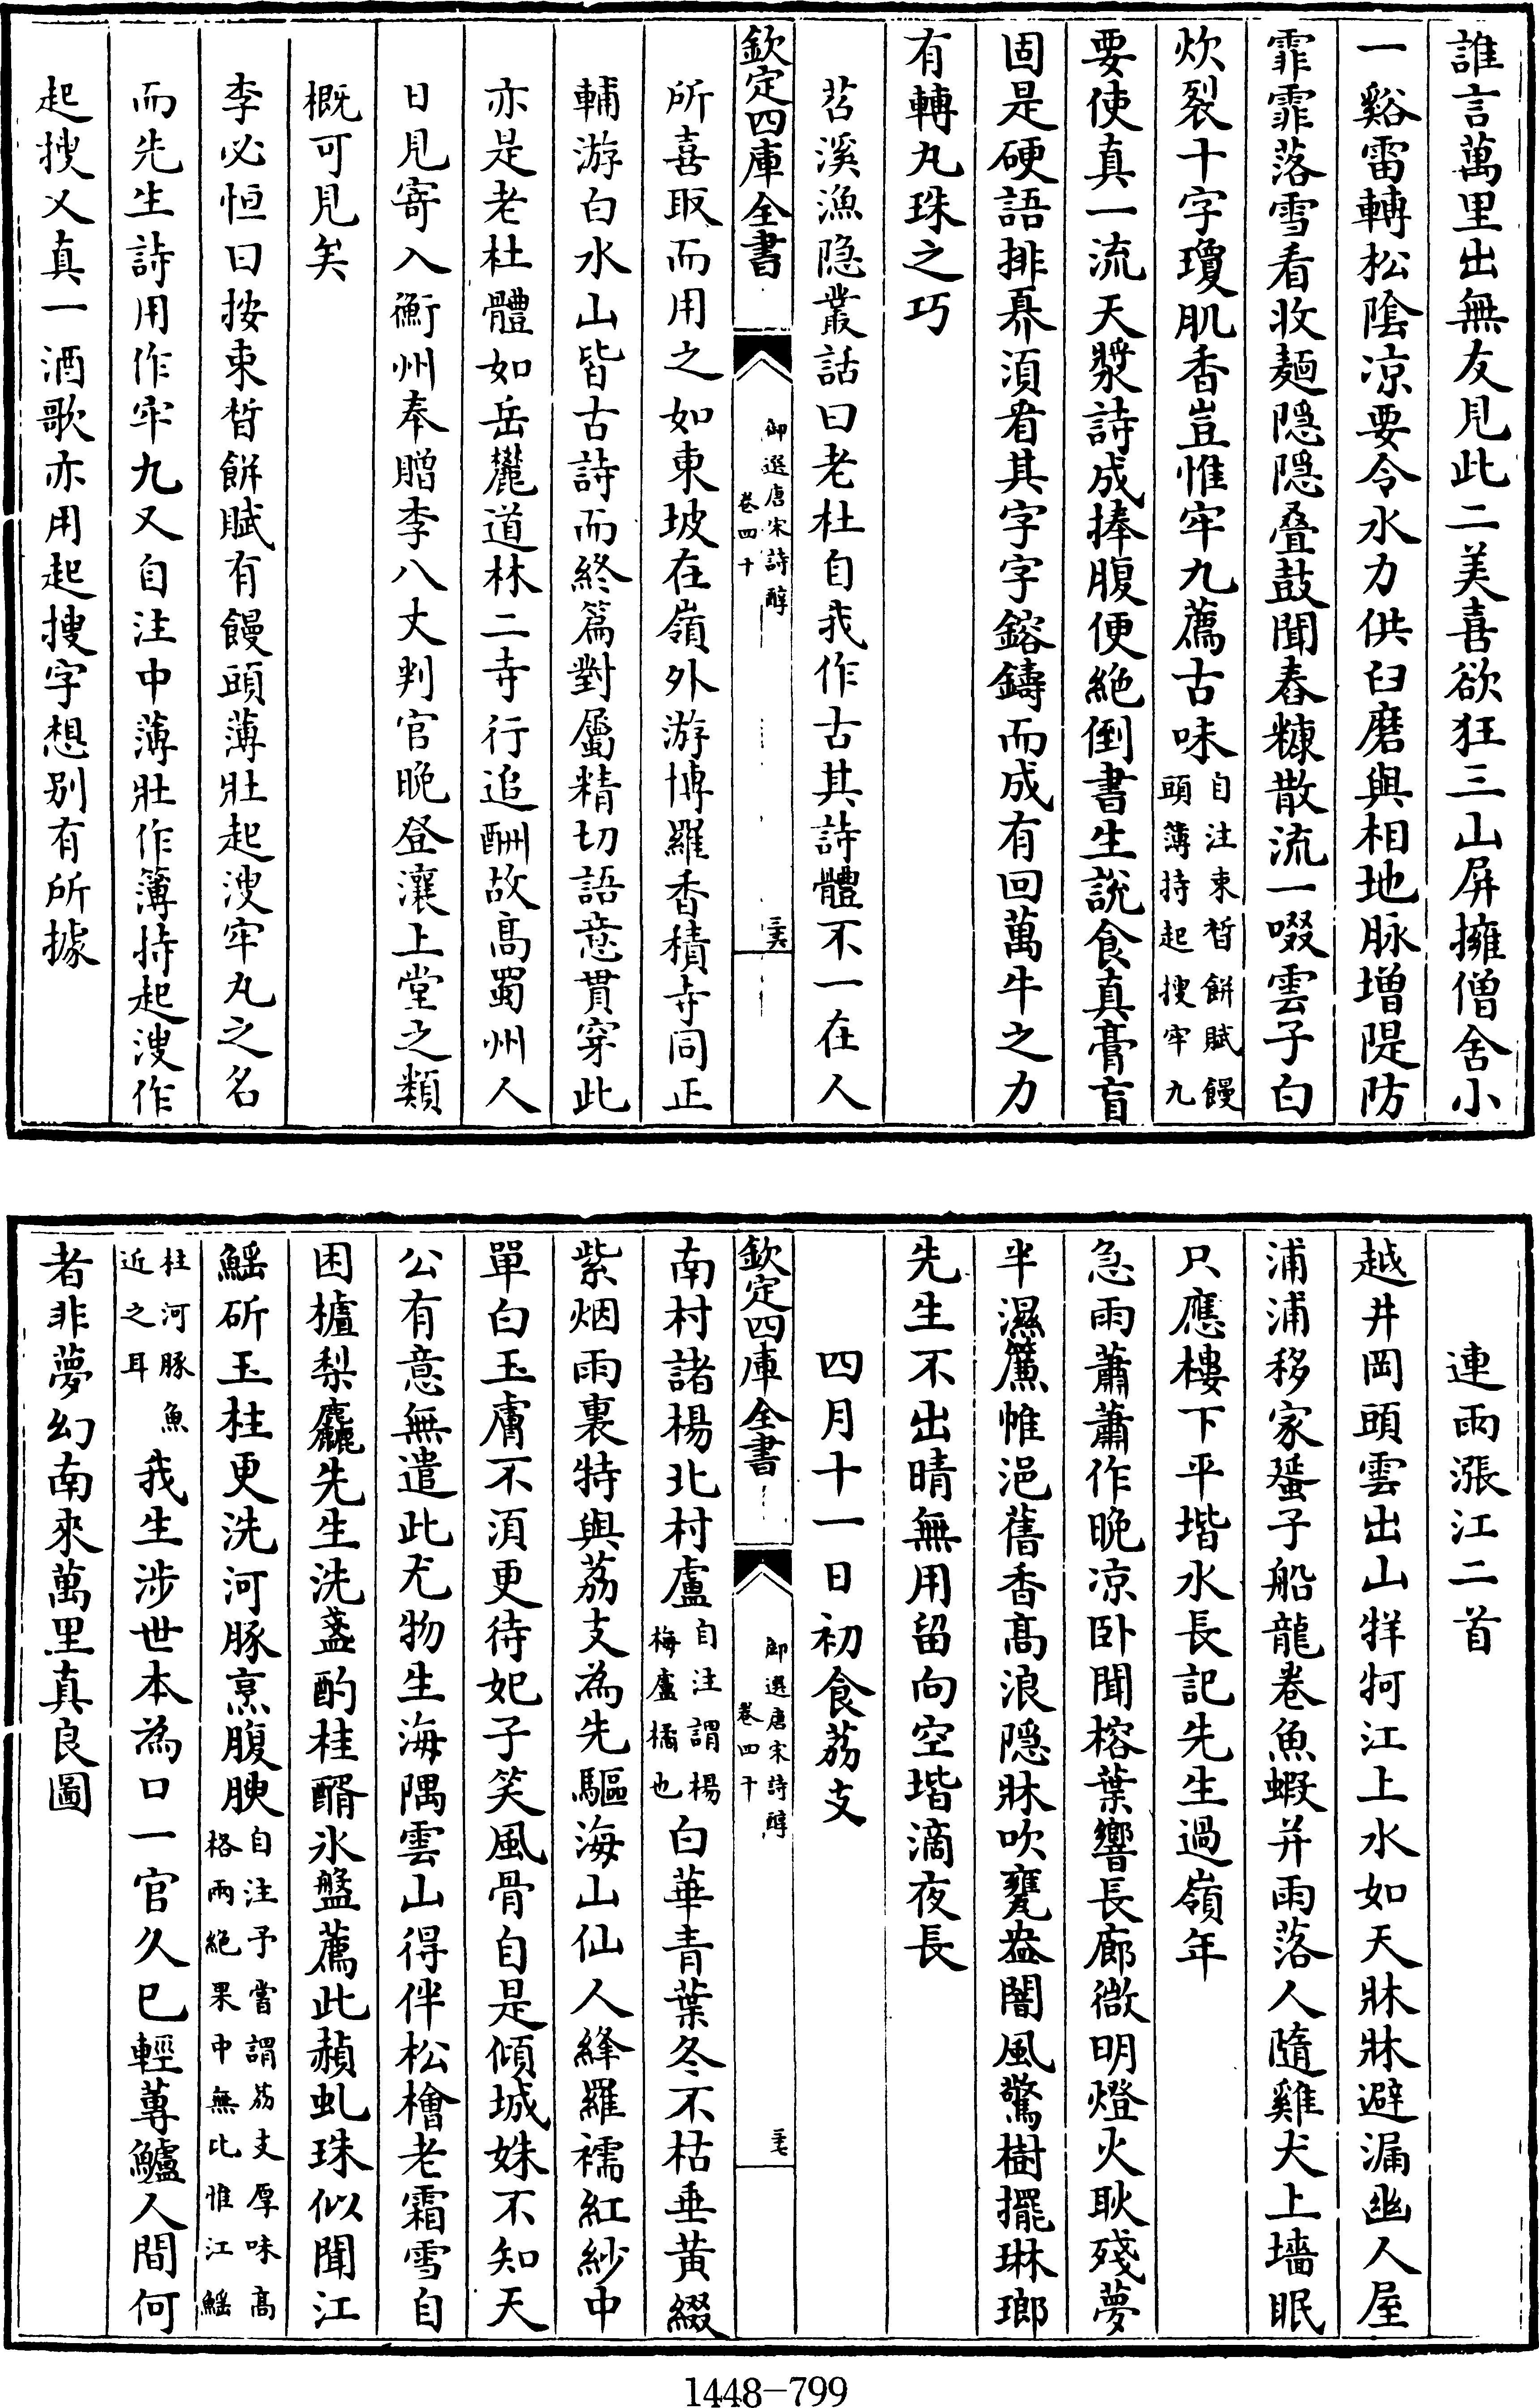 誰言萬里出無友見此二美喜欲狂三山屏擁僧舍小
一谿雷轉松陰凉要令水力供臼磨與相地脉增隄防
霏霏落雪看收麵隱隱叠鼓聞舂糠散流一啜雲子白
炊裂十字瓊肌香豈惟牢九薦古味自注束皙餅賦饅頭簿持起搜牢九
要使真一流天漿詩成捧腹便絶倒書生說食真膏盲
固是硬語排奡須看其字字鎔鑄而成有回萬牛之力
有轉丸珠之巧
苕溪漁隐叢話曰老杜自我作古其詩體不一在人
欽定四庫全書 御選唐宋詩醇 卷四十 三六
所喜取而用之如東坡在嶺外游博羅香積寺同正
輔游白水山皆古詩而終篇對屬精切語意貫穿此
亦是老杜體如岳麓道林二寺行追酬故髙蜀州人
日見寄入衡州奉贈李八丈判官晩登瀼上堂之類
概可見矣
李必恒曰按束皙餅賦有饅頭薄壯起溲牢丸之名
而先生詩用作牢九又自注中薄壯作簿持起溲作
起搜又真一酒歌亦用起搜字想别有所據
連雨漲江二首
越井岡頭雲出山牂牁江上水如天牀牀避漏幽人屋
浦浦移家蜑子船龍卷魚蝦并雨落人隨雞犬上墻眠
只應樓下平堦水長記先生過嶺年
急雨蕭蕭作晩凉卧聞榕葉響長廊微明燈火耿殘夢
半濕簾帷浥舊香髙浪隱牀吹甕盎闇風驚樹擺琳瑯
先生不出晴無用留向空堦滴夜長
四月十一日初食荔支
欽定四庫全書 御選唐宋詩醇 卷四十 三七
南村諸楊北村盧自注謂楊梅盧橘也白華青葉冬不枯垂黄綴
紫烟雨裏特與荔支為先驅海山仙人絳羅襦紅紗中
單白玉膚不須更待妃子笑風骨自是傾城姝不知天
公有意無遣此尤物生海隅雲山得伴松檜老霜雪自
困樝梨麤先生洗盞酌桂醑氷盤薦此赬虬珠似聞江
鰩斫玉柱更洗河豚烹腹腴自注予嘗謂荔支厚味髙格兩絶果中無比惟江鰩
柱河豚魚近之耳我生涉世本為口一官久已輕蓴鱸人間何
者非夢幻南來萬里真良圖
1448-799